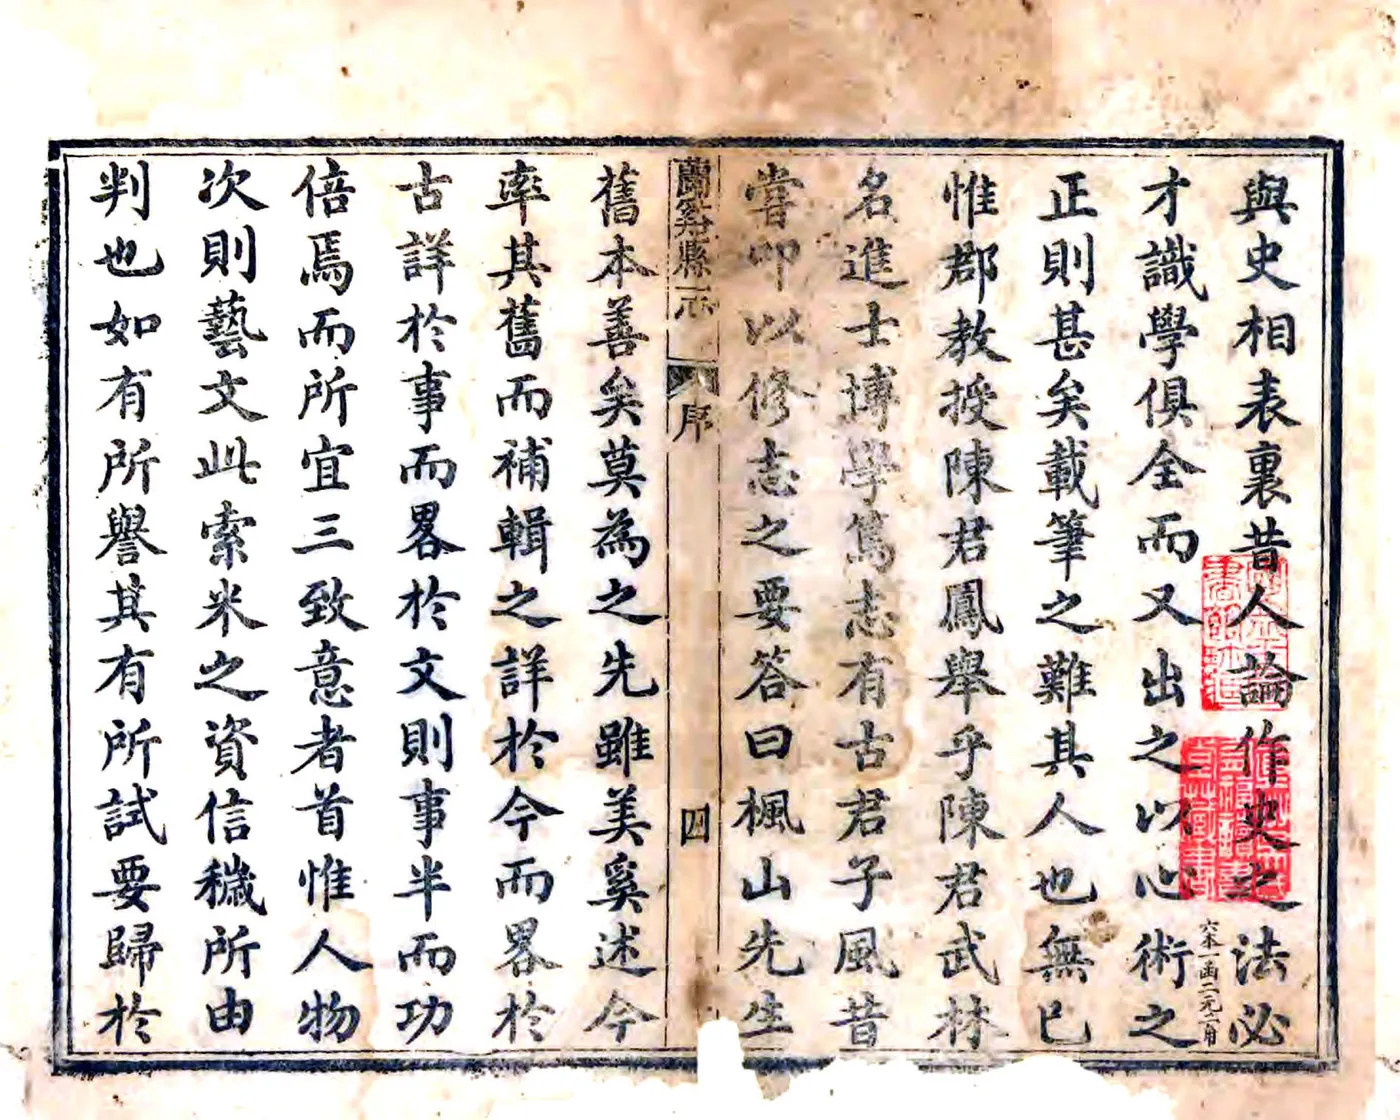 與史相表裏昔人論作史之法必
才識學俱全而又出之以心術之
正則甚矣載筆之難其人也無已
惟郡教授陳君鳳舉乎陳君武林
名進士博學篤志有古君子風昔
嘗叩以修志之要答曰楓山先生
蘭谿縣志
序
四
舊本善矣莫為之先雖美奚述今
率其舊而補輯之詳於今而畧於
古詳於事而畧於文則事半而功
倍焉而所宜三致意者首惟人物
次則藝文此索米之資信穢所由
判也如有所譽其有所試要歸於
六本一函二元二角